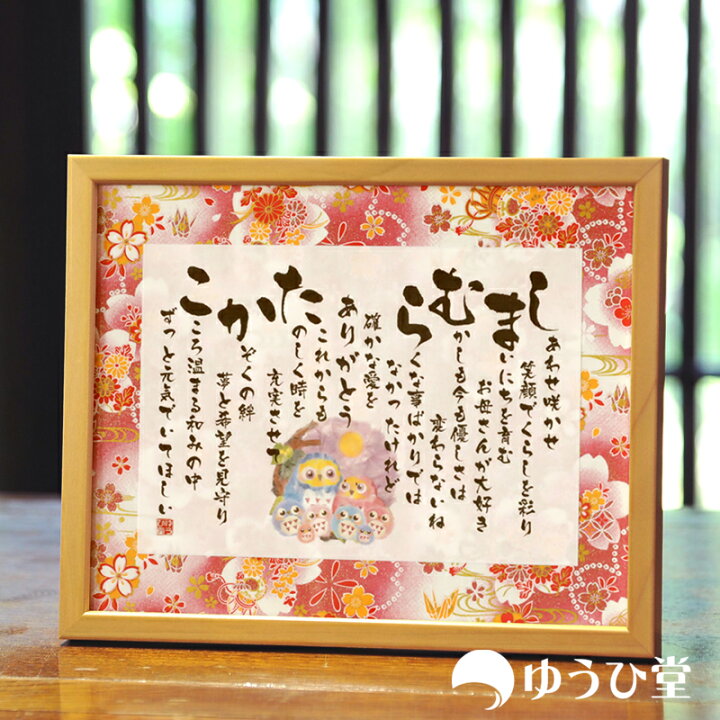 しあわせ咲かせ
笑顔でくらしを彩り
まいにちを育む
お母さんが大好き
むかしも今も優しさは
変わらないね
らくな事ばかりでは
なかったけれど
確かな愛を
ありがとう
これからも
たのしく時を
充実させて
かぞくの絆
夢と希望を見守り
こころ温まる和みの中
ずっと元気でいてほしい
ゆうひ堂